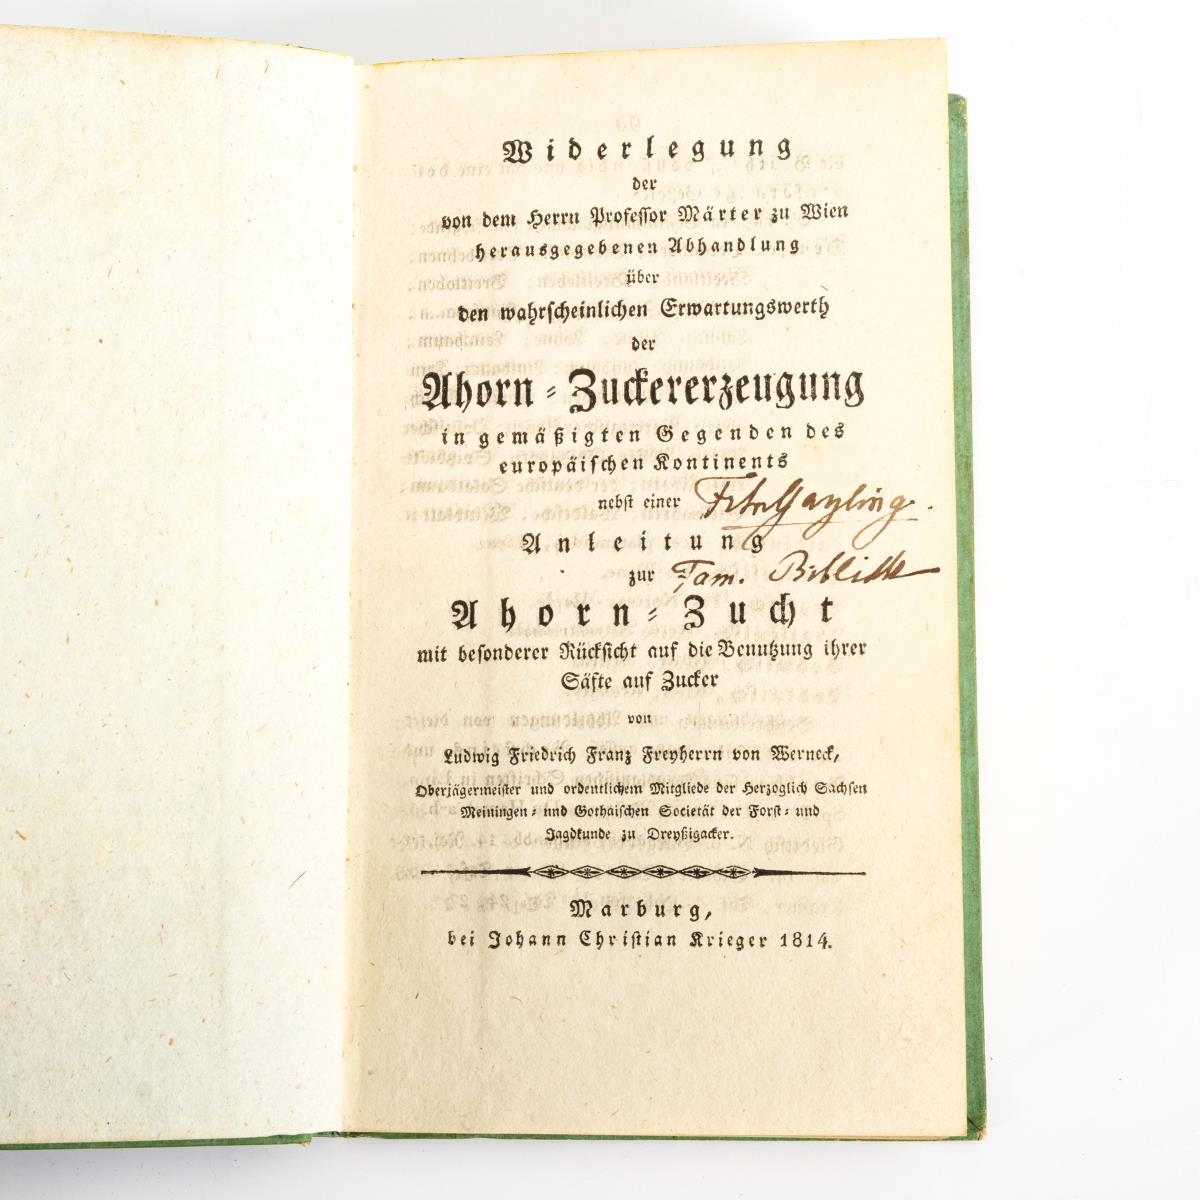 Widerlegung
der
von dem Herrn Professor Märter zu Wien
herausgegebenen Abhandlung
über
den wahrscheinlichen Erwartungswerth
der
Ahorn-Zuckererzeugung
in gemäßigten Gegenden des
europäischen Kontinents
nebst einer
Anleitung
zur Fam.
Ahorn-Zucht
mit besonderer Rücksicht auf die Benutzung ihrer
Säfte auf Zucker
von
Ludwig Friedrich Franz Freyherrn von Werneck,
Oberjägermeister und ordentlichem Mitgliede der Herzoglich Sachsen
Meiningen- und Gothaischen Societät der Forst- und
Jagdkunde zu Dreyßigacker.
Marburg,
bei Johann Christian Krieger 1814.